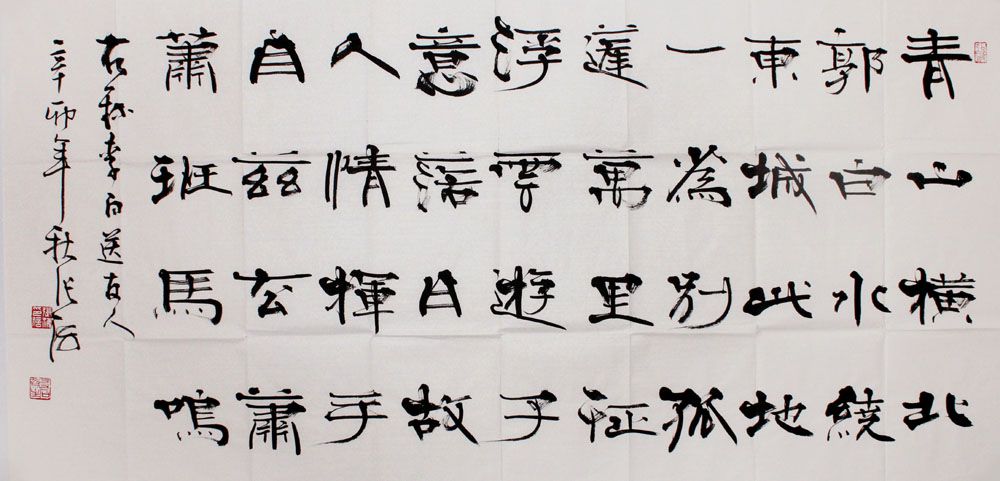 青山橫北
郭白水繞
東城此地
一為別孤
蓬萬里征
浮雲遊子
意落日故
人情揮手
自茲去蕭
蕭班馬鳴
右錄李白送友人
辛卯年秋